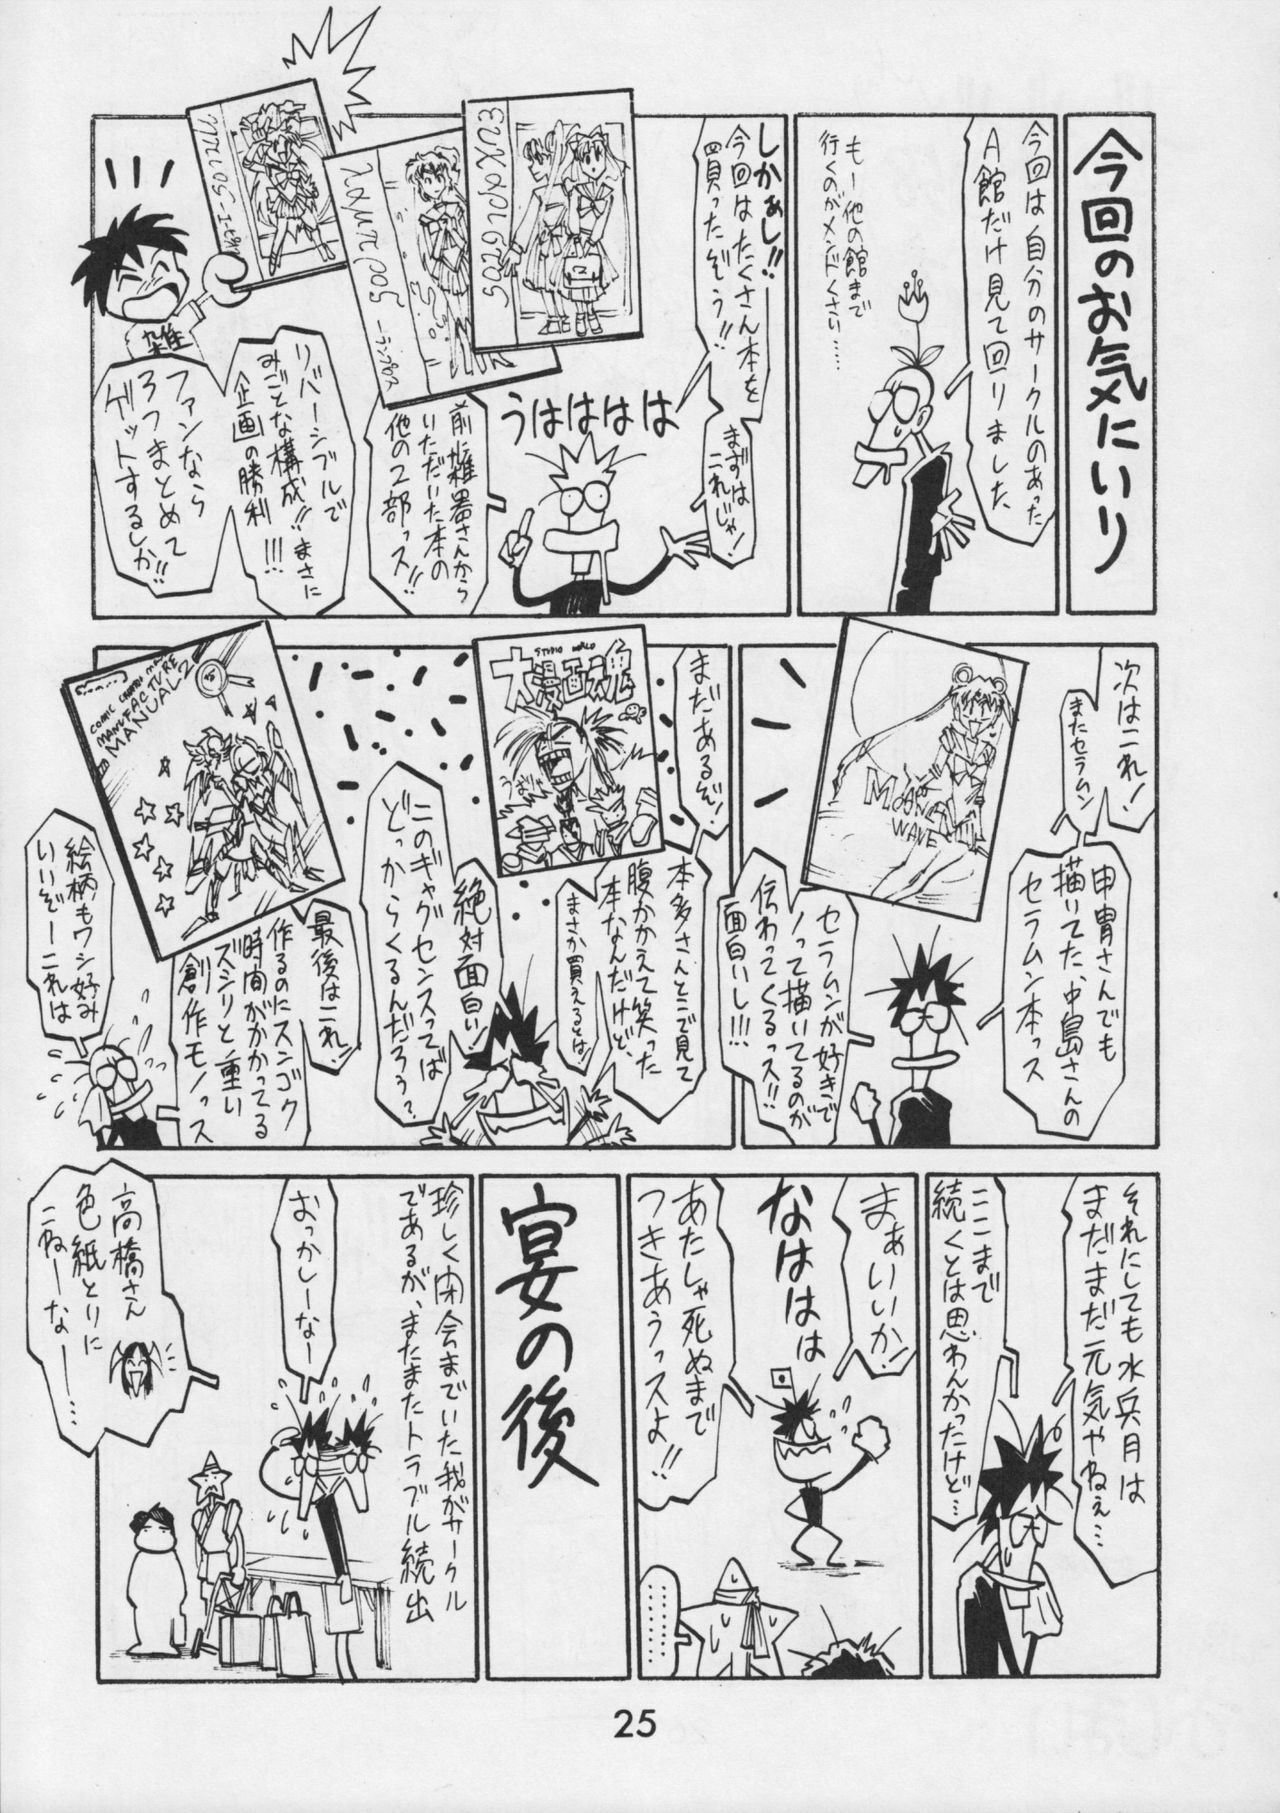 今回のお気にいり
今回は自分のサークルのあった
A館だけ見て回りました
もー他の館まで
行くのがメンドくさい…
しかぁし!!
今回はたくさん本を
買ったぞう!!
まずは
これじゃ!
うははははは
前に雑器さんから
いただいた本の
他の2部っス!!
リバーシブルで
みごとな構成!!まさに
企画の勝利!!!
ファンなら
3つまとめて
ゲットするしか!!
雑
次はこれ!
またセラムン
申冑さんでも
描いてた、中島さんの
セラムン本っス
MOON
WAVE
セラムンが好きで
ノって描いてるのが
伝わってくるっス!!
面白いし!!!
まだあるぞ!
STUDIO WORLD
大漫画魂
本多さんとこで見て
腹かかえて笑った
本なんだけど、
まさか買えるとは
絶対面白い!
このギャグセンスってば
どっからくるんだろう?
最後はこれ
作るのにスンゴク
時間がかかってる
ズシリと重い
創作モノっス
COMIC
MANUFACTURE
MANUAL 2
絵柄もワシ好み
いいぞーこれは
それにしても水兵月は
まだまだ元気やねぇ…
ここまで
続くとは思わんかったけど…
まぁいいか!
なははは
あたしゃ死ぬまで
つきあうっスよ!!
………
宴の後
珍しく閉会までいた我がサークル
であるが、またまたトラブル続出
おっかしーなー
高橋さん
色紙とりに
こねーなー……
25